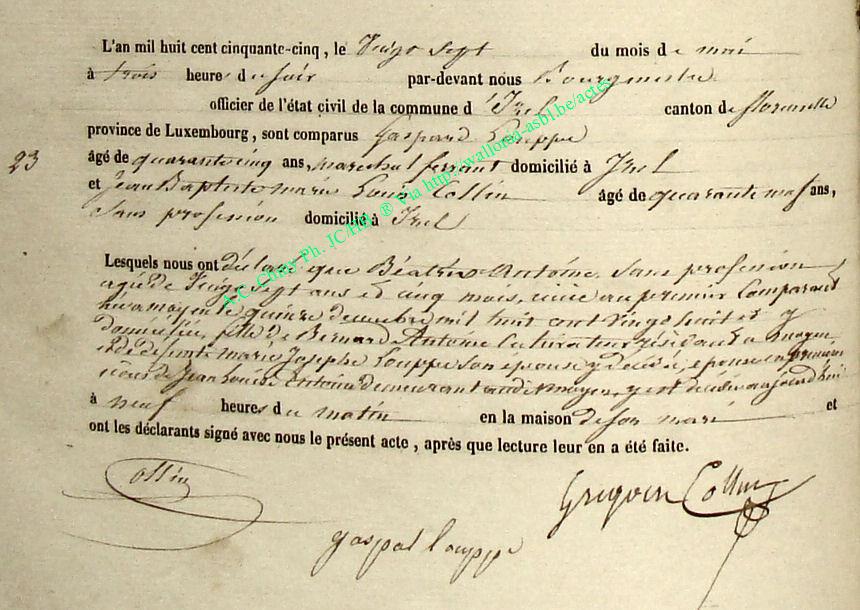 L'an mil huit cent cinquante-cinq, le Vingt Sept du mois de mai
à trois heures du soir par-devant nous Bourgmestre
officier de l'état civil de la commune d'Izel canton de florenville
province de Luxembourg, sont comparus Gaspard Louppe
23 âgé de quarante cinq ans, marechal ferrant domicilié à Izel
et Jean Baptiste marie Louis Collin âgé de quarante ans,
Sans profession domicilié à Izel
Lesquels nous ont déclaré que Béatrix Antoine, Sans profession
agée de Vingt Sept ans et cinq mois, nièce au premier Comparant
née a moyen le quinze decembre mil huit cent vingt huit et y
domiciliée, fille de Bernard Antoine Cultivateur résidant a moyen
et de defunte marie Josephe Louppe Son épouse y décédée, epouse en premieres
nôces de Jean Louis Antoine demeurant audit moyen, y est décédée aujourd'hui
à neuf heures du matin en la maison de son mari et
ont les déclarants signé avec nous le présent acte, après que lecture leur en a été faite.
Collin
Collin
gaspar louppe
A.C. Chiny Ph. JC/HA ® Via http://wallonia-asbl.be/actes